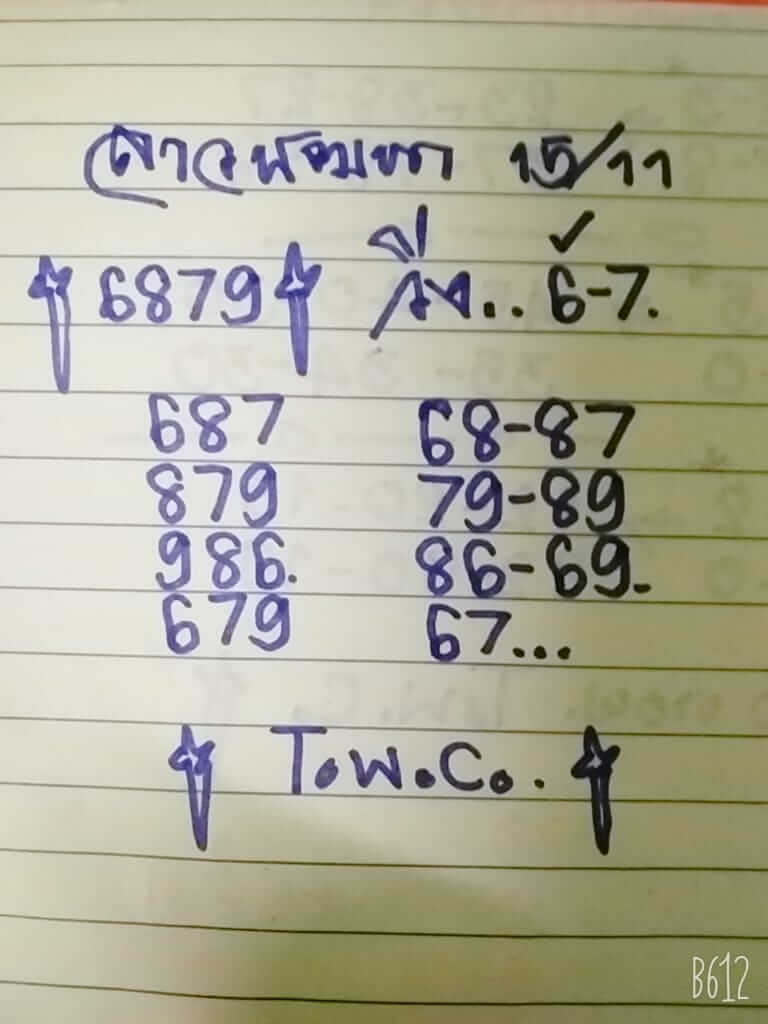 ลาวพัฒนา 15/11
6879 วิ่ง.. 6-7.
687 68-87
879 79-89
986. 86-69.
679 67...
T.W.C..
B612